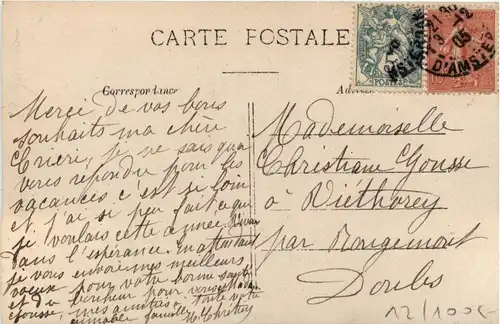 CARTE POSTALE
Correspondance
Merci de vos bons
souhaits ma chère
je ne sais que
vous répondre pour les
vacances c'est si loin
et j'ai si peu fait ce que
je voulais cette année. Vivons
dans l'espérance. En attendant
je vous envoie mes meilleurs
voeux pour votre bonne santé
et du bonheur pour
mes amitiés à toute votre
aimable famille
D'AMSTER
05
POSTES
Mademoiselle
Christiane Gousse
à Viéthorey
par Rougemont
Doubs
12/100€